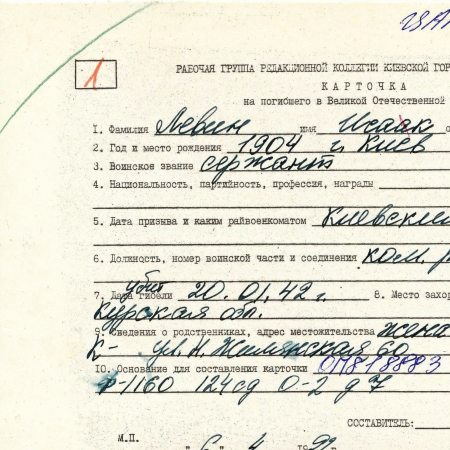 1
РАБОЧАЯ ГРУППА РЕДАКЦИОННОЙ КОЛЛЕГИИ КИЕВСКОЙ ГОР
КАРТОЧКА
на погибшего в Великой Отечественной
1. Фамилия Левин имя Исаак о
2. Год и место рождения 1904 г. Киев
3. Воинское звание сержант
4. Национальность, партийность, профессия, награды
5. Дата призыва и каким райвоенкоматом Киевским
6. Должность, номер воинской части и соединения ком.
убит
7. Дата гибели 20.01.42 г. 8. Место захор
Курская обл.
9. Сведения о родственниках, адрес местожительства жена
К- ул. Н. Жилянская 60
10. Основание для составления карточки ОП818883
Ф-1160 124сд О-2 д 7
СОСТАВИТЕЛЬ:
М.П.
"6" 4 1992